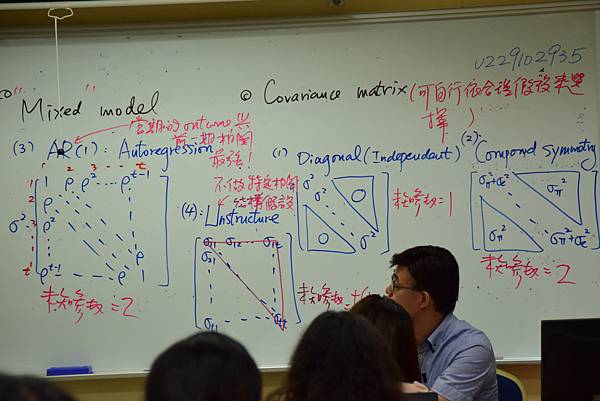 U229102935
"Mixed" model
◎ Covariance matrix (可自行依合理假設來選擇)
(3) AR(1): Autoregression
當期的outcome與前一期相關最強!
1 2 3 ... t
σ² 1 ρ ρ² ... ρᵗ⁻¹
ρ
ρ²
ρᵗ⁻¹ ... ρ 1
未知參數=2
(4): Unstructure
不做特定相關結構假設
σ₁₁ σ₁₂ ... σ₁t
σ₂₁
σt₁ ... σtt
未知參數=t(
(1) Diagonal (Independent)
σ²
σ²
0
0
σ²
未知參數=1
(2): Compound Symmetry
σπ²+σε²
σπ²
σπ²
σπ²+σε²
未知參數=2